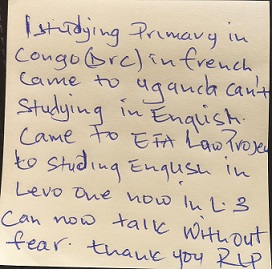 I studying Primary in
Congo (Drc) in french
came to uganda can't
Studying in English.
Came to EFA Law Projec
to studing English in
Levo one now in L.3
Can now talk without
fear. thank you RLP